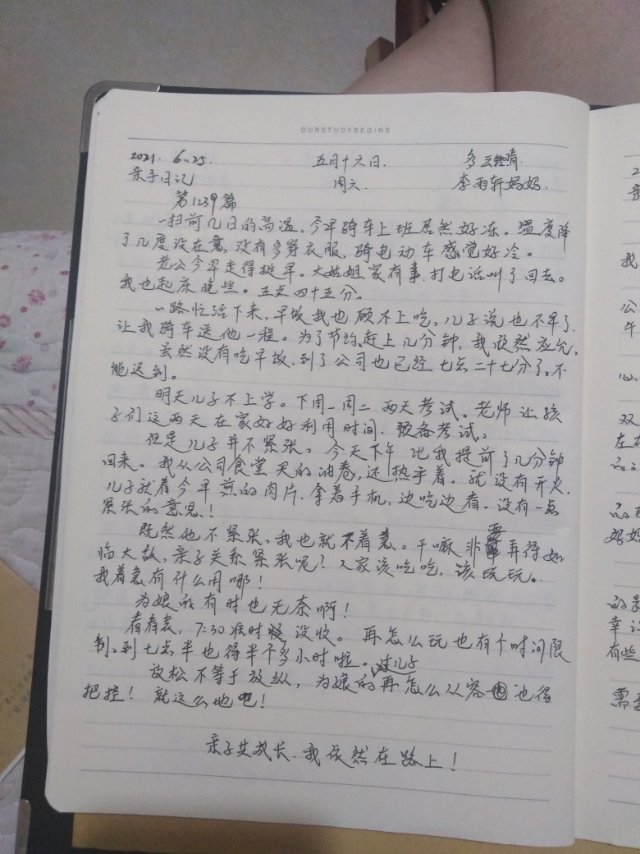 OURSTUDYBEGINS
2021. 6.25. 五月十六日. 多云转晴.
亲子日记 周六. 李雨轩妈妈.
第1239篇
一扫前几日的高温，今早骑车上班居然好冻。温度降
了几度没在意，没有多穿衣服，骑电动车感觉好冷。
老公今早走得挺早。大姑姐家有事，打电话叫了回去。
我也起床晚些。五点四十五分。
一路忙活下来，早饭我也顾不上吃，儿子说也不早了，
让我骑车送他一程。为了节约，赶上几分钟，我欣然应允。
虽然没有吃早饭，到了公司也已经七点二十七分了，不
能迟到。
明天儿子不上学。下周一周二两天考试。老师让孩
子们这两天在家好好利用时间，预备考试。
但是儿子并不紧张。今天下午比我提前了几分钟
回来。我从公司食堂买的油卷，还热乎着。就没有开火，
儿子就着今早煎的肉片，拿着手机，边吃边看。没有一点
紧张的意思！
既然他不紧张，我也就不着急。干嘛非要弄得如
临大敌，亲子关系紧张呢？人家该吃吃，该玩玩。
我着急有什么用哪！
为娘的有时也无奈啊！
看看表，7:30准时没收。再怎么玩也有个时间限
制。到七点半也得半个多小时啦。
放松不等于放纵，为娘的对儿子再怎么从容也得
把控！就这么地吧！
亲子共成长，我依然在路上！